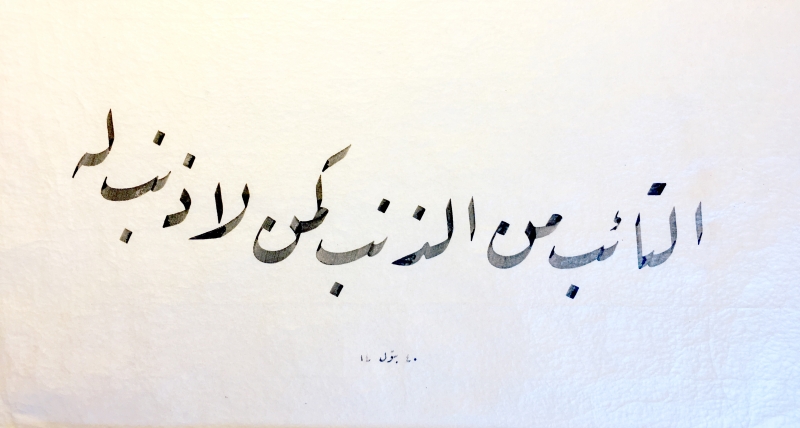 التائب من الذنب كمن لا ذنب له